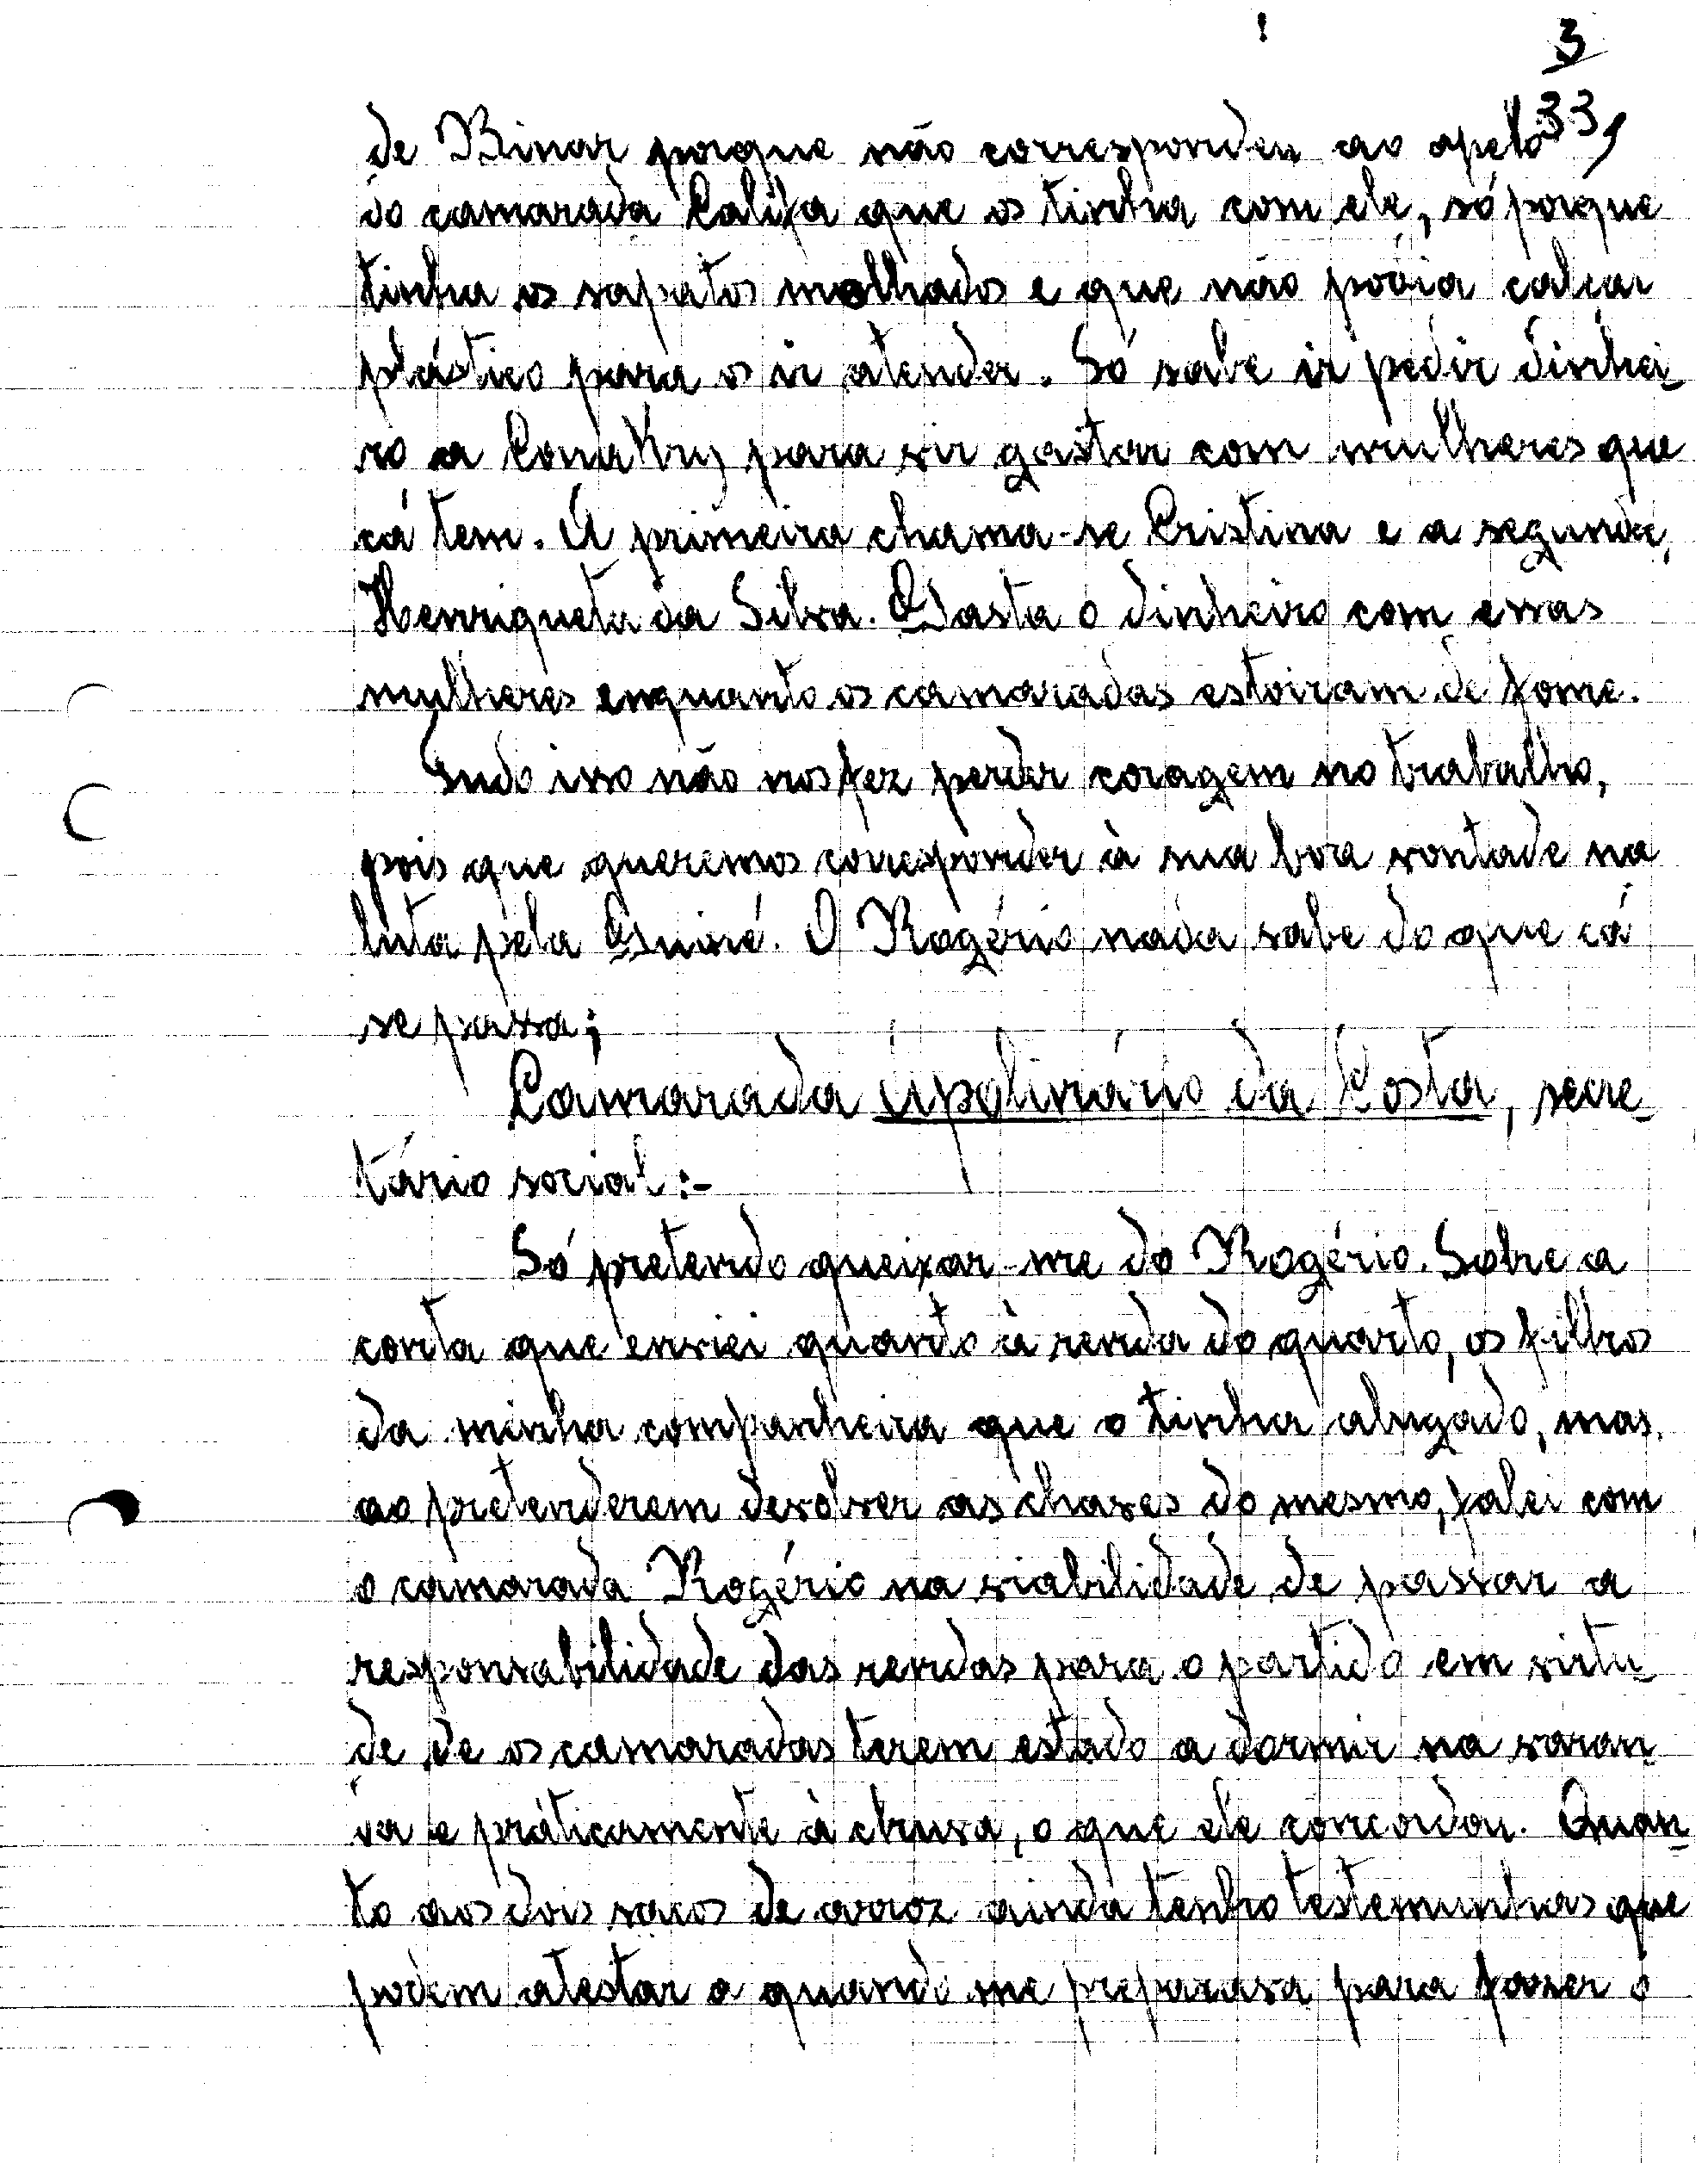 3
33,
de Binar porque não correspondeu ao apelo
do camarada Califa que os tinha com ele, só porque
tinha os sapatos molhados e que não podia calçar
plástico para os ir atender. Só sabe ir pedir dinhei-
ro a Conakry para vir gastar com mulheres que
cá tem. A primeira chama-se Cristina e a segunda,
Henriqueta da Silva. Gasta o dinheiro com essas
mulheres enquanto os camaradas estoiram de fome.
Tudo isso não nos fez perder coragem no trabalho,
pois que queremos corresponder à sua boa vontade na
luta pela Guiné. O Rogério nada sabe do que cá
se passa;
Camarada Apolinário da Costa, secre-
tário social:-
Só pretendo queixar-me do Rogério. Sobre a
conta que enviei quanto à renda do quarto, os filhos
da minha companheira que o tinha alugado, mas,
ao pretenderem devolver as chaves do mesmo, falei com
o camarada Rogério na viabilidade de passar a
responsabilidade das rendas para o partido em virtu-
de de os camaradas terem estado a dormir na varan-
da e práticamente à chuva, o que ele concordou. Quan-
to aos dois sacos de arroz ainda tenho testemunhas que
podem atestar a quando me preparava para fazer o